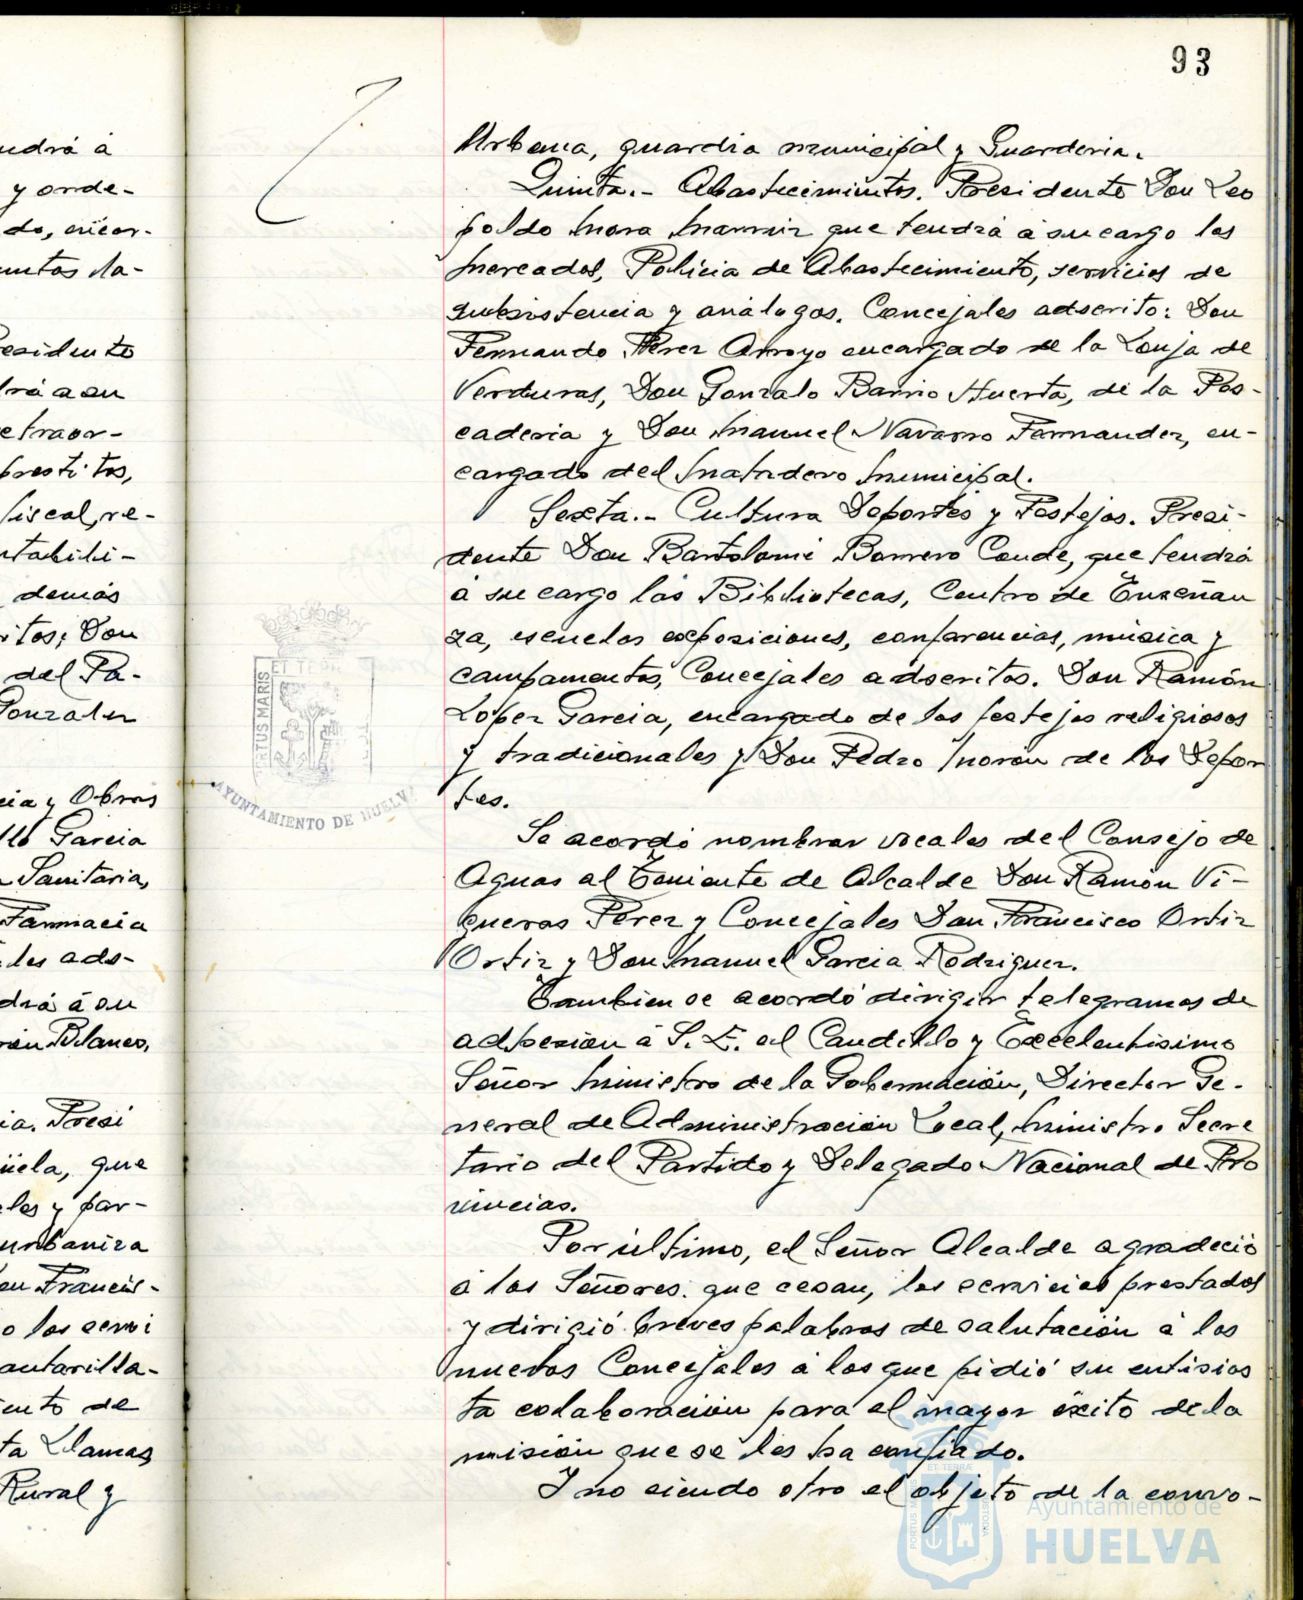 93
Urbana, guardia municipal y Guarderia.
Quinta.- Abastecimientos. Presidente Don Leo
poldo Mora que tendrá á su cargo los
Mercados, Policia de Abastecimiento, servicios de
subsistencia y análogos. Concejales adscrito: Don
Fernando Pérez Arroyo encargado de la Lonja de
Verduras, Don Gonzalo Barrio Huerta, de la Pes-
caderia y Don Manuel Navarro Fernandez, en-
cargado del Matadero Municipal.
Sexta.- Cultura Deportes y Festejos. Presi-
dente Don Bartolomé Borrero Conde, que tendrá
á su cargo las Bibliotecas, Centro de Enseñan
za, escuelas exposiciones, conferencias, música y
campamentos, Concejales adscritos. Don Ramón
López Garcia, encargado de los festejos religiosos
y tradicionales y Don Pedro Morón de los Depor
tes.
Se acordó nombrar vocales del Consejo de
Aguas al Teniente de Alcalde Don Ramón Vi-
gueras Pérez y Concejales Don Francisco Ortiz
Ortiz y Don Manuel Garcia Rodriguez.
Tambien se acordó dirigir telegramas de
adhesión á S. E. el Caudillo y Excelentisimo
Señor Ministro de la Gobernación, Director Ge-
neral de Administración Local, Ministro Secre
tario del Partido y Delegado Nacional de Pro
vincias.
Por último, el Señor Alcalde agradeció
á los Señores que cesan, los servicios prestados
y dirigió breves palabras de salutación á los
nuevos Concejales á los que pidió su entusias
ta colaboración para el mayor éxito de la
misión que se les ha confiado.
Y no siendo otro el objeto de la convo-
endrá á
y orde-
do, encar-
untos la-
residente
drá a su
etraor-
prestitos,
fiscal, re-
ntabili-
demás
ritos; Don
del Pa-
Gonzalez
cia y Obras
llo Garcia
Sanitaria,
Farmacia
les ads-
drá á su
Blanco,
ia. Presi
üela, que
les y par-
urbaniza
en Francis-
o los servi
antarilla-
ento de
ta Llamas
Rural y
PORTUS MARIS
ET TERR
AYUNTAMIENTO DE HUELVA
PORTUS MARIS
ET TERRÆ
CUSTODIA
Ayuntamiento de
HUELVA